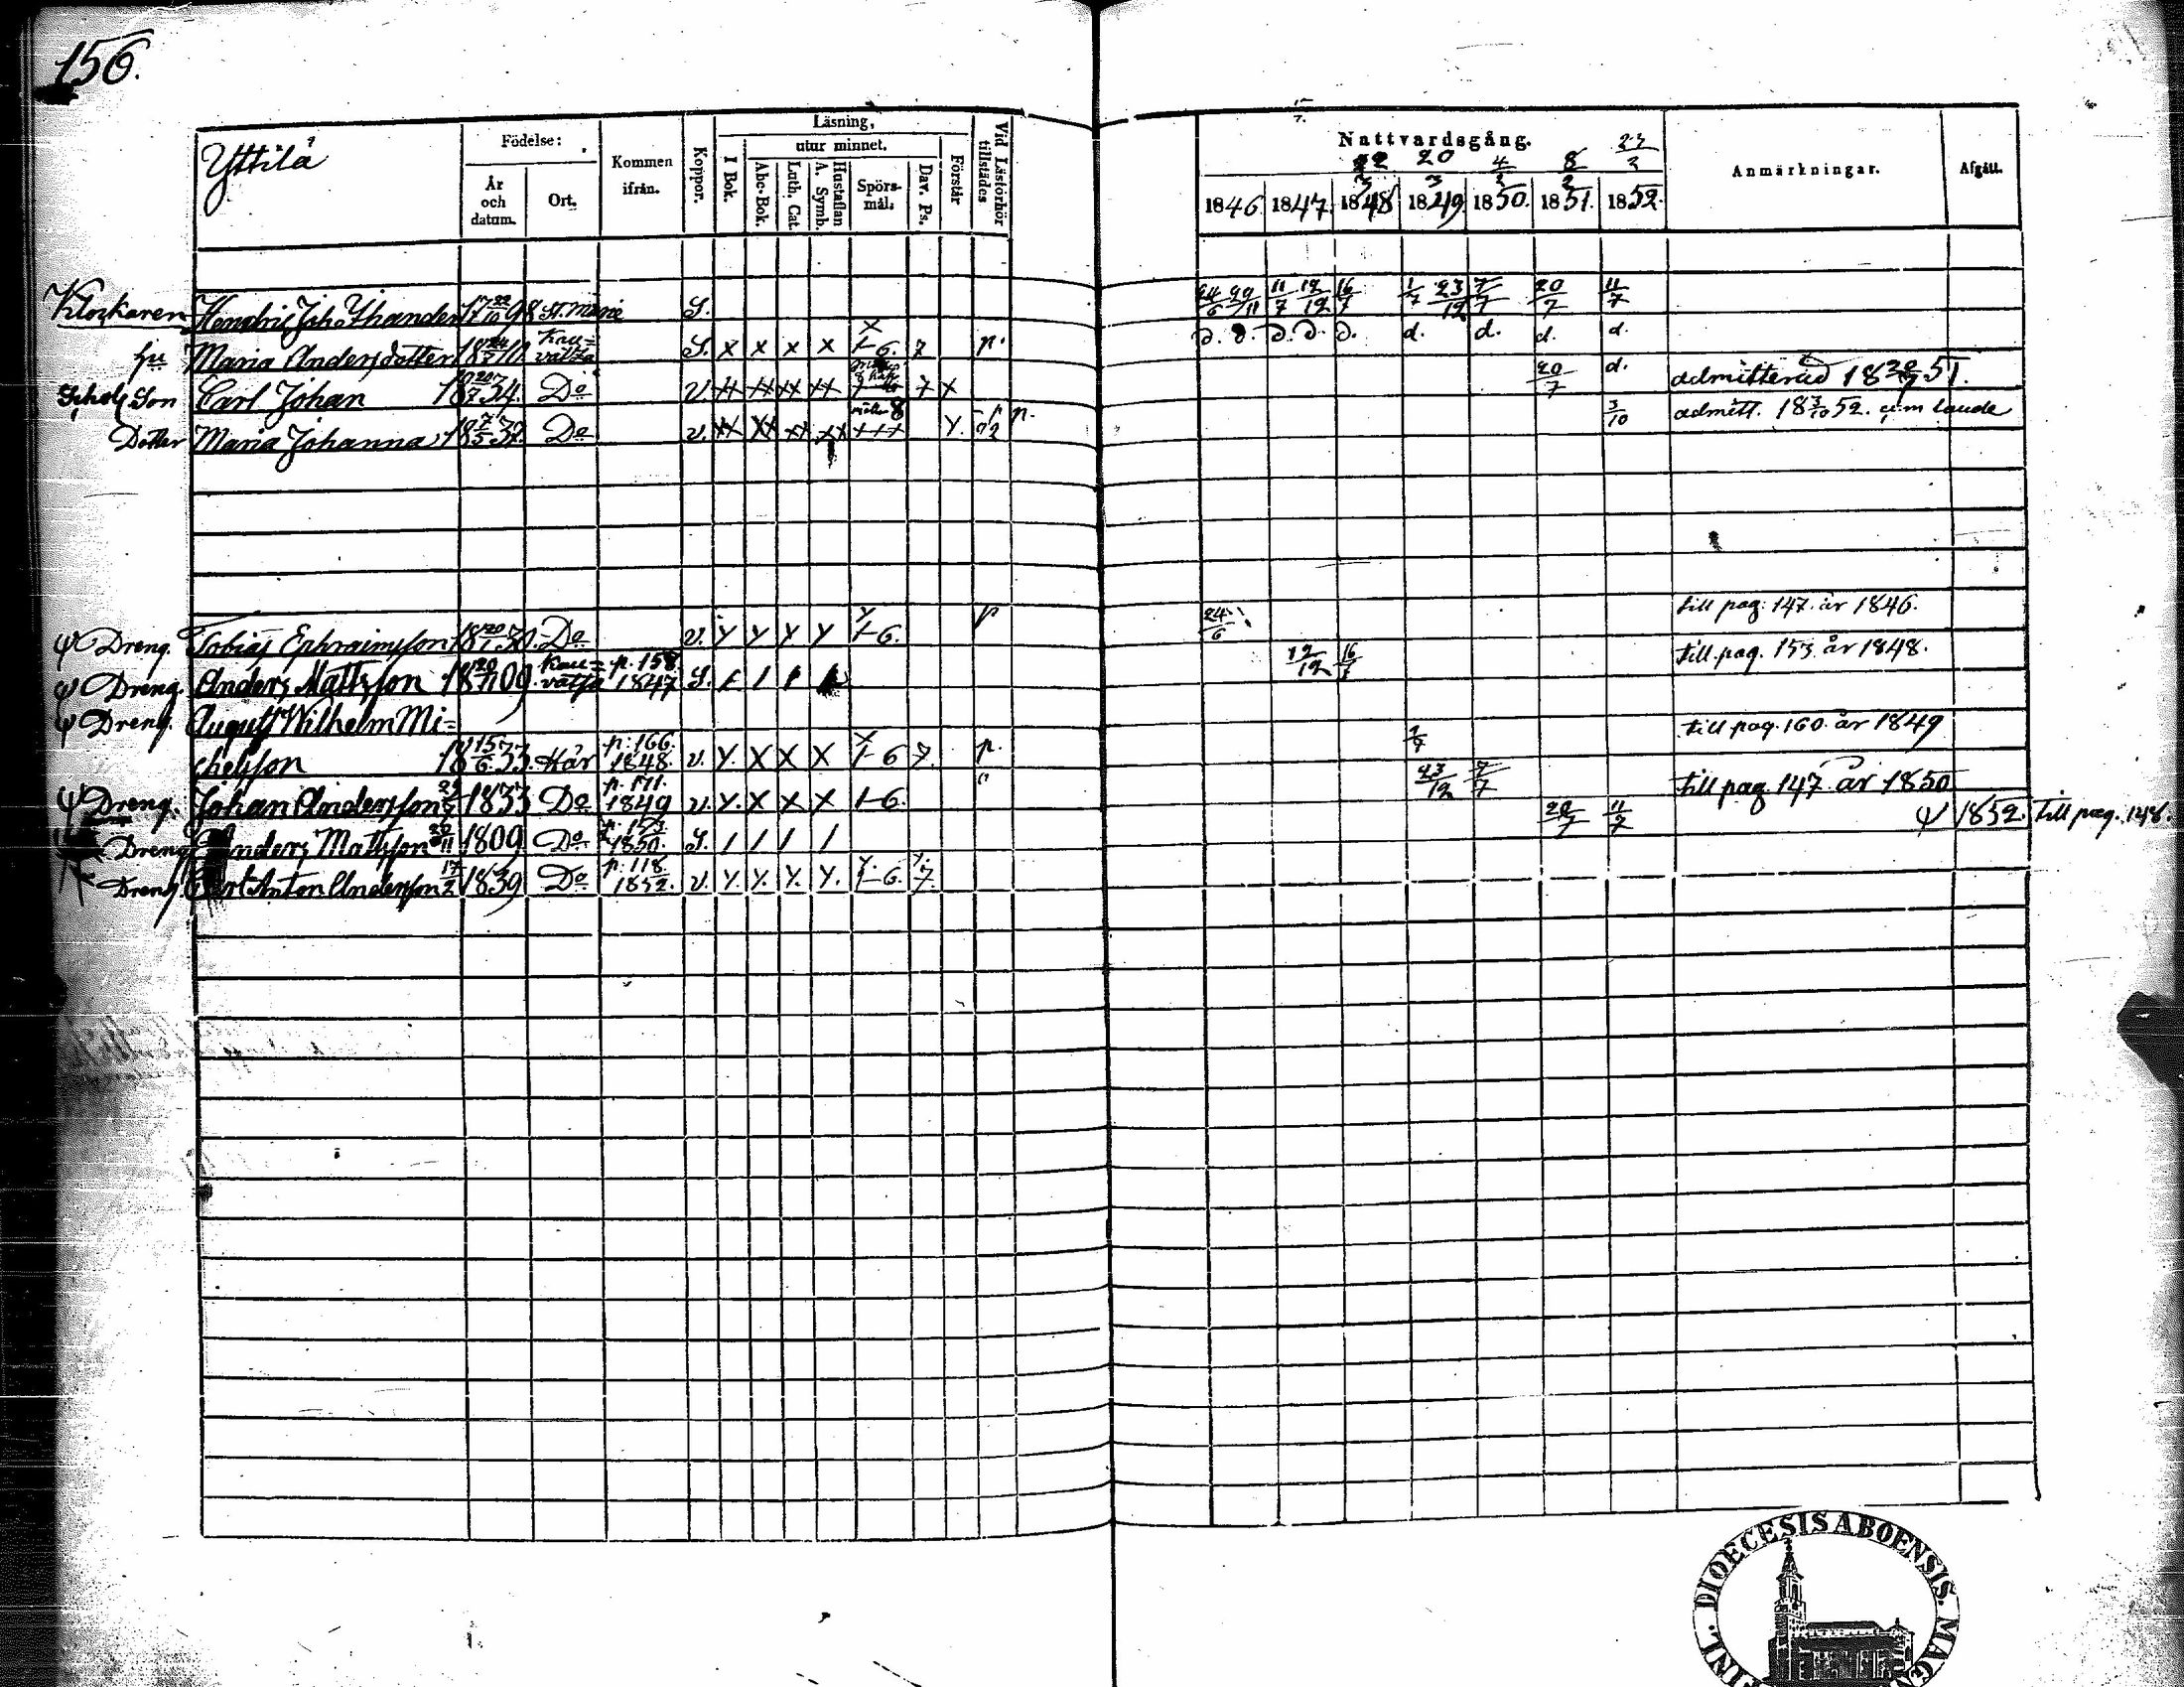 156.
Yttilä
Födelse:
År och datum.
Ort.
Kommen ifrån.
Koppor.
Läsning,
I Bok.
utur minnet.
Abc-Bok.
Luth. Cat.
Hustaflan A. Symb.
Spörsmål.
Dav. Ps.
Förstår
Vid Läsförhör tillstädes
Nattvardsgång.
20/3 4/3 8/3 23/3
1846. 1847. 1848 1849. 1850. 1851. 1852.
Anmärkningar.
Afgått.
Klockaren Hendric Joh. Ythander 17 22/10 98 St. Marie S. 24/6 29/11 11/7 12/12 16/7 1/7 23/12 7/7 20/7 11/7
hu Maria Andersdotter 18 24/5 10. Kauvatsa S. x x x x x 1-6. 7 p. d. d. d. d. d. d. d. d. d.
Son Carl Johan 18 20/7 34. Do v. 7 x 20/7 d. admitterad 18 20/7 51.
Dotter Maria Johanna 18 7/5 37. Do v. Y. p. 3/10 admitt. 18 3/10 52. cum laude
Dreng. Tobias Ephraimsson 18 20/1 30. Do v. Y Y Y Y Y 1-6. p 24/6 till pag: 147. år 1846.
Dreng. Anders Mattsson 18 20/11 09. Kauvatsa p. 158 1847 S. 12/12 16/7 till pag. 153 år 1848.
Dreng. August Wilhelm Mi=
chelsson 18 15/6 33. Här p: 166. 1848. v. Y. X X X x 1-6 7. p. 1/7 till pag. 160. år 1849
Dreng. Johan Andersson 1833 Do p. 171. 1849 v. Y. X X X 1-6. " 23/12 7/7 till pag. 147 år 1850
Dreng Anders Mattsson 20/11 1809 Do p. 153 1850. S. / / / / 20/7 11/7 1852. till pag. 148.
Dreng Carl Anton Andersson 17/2 1839 Do p: 118 1852. v. Y. Y. Y. Y. Y. 1-6. Y. 7.
DIOECESIS ABOENSIS. MAGN